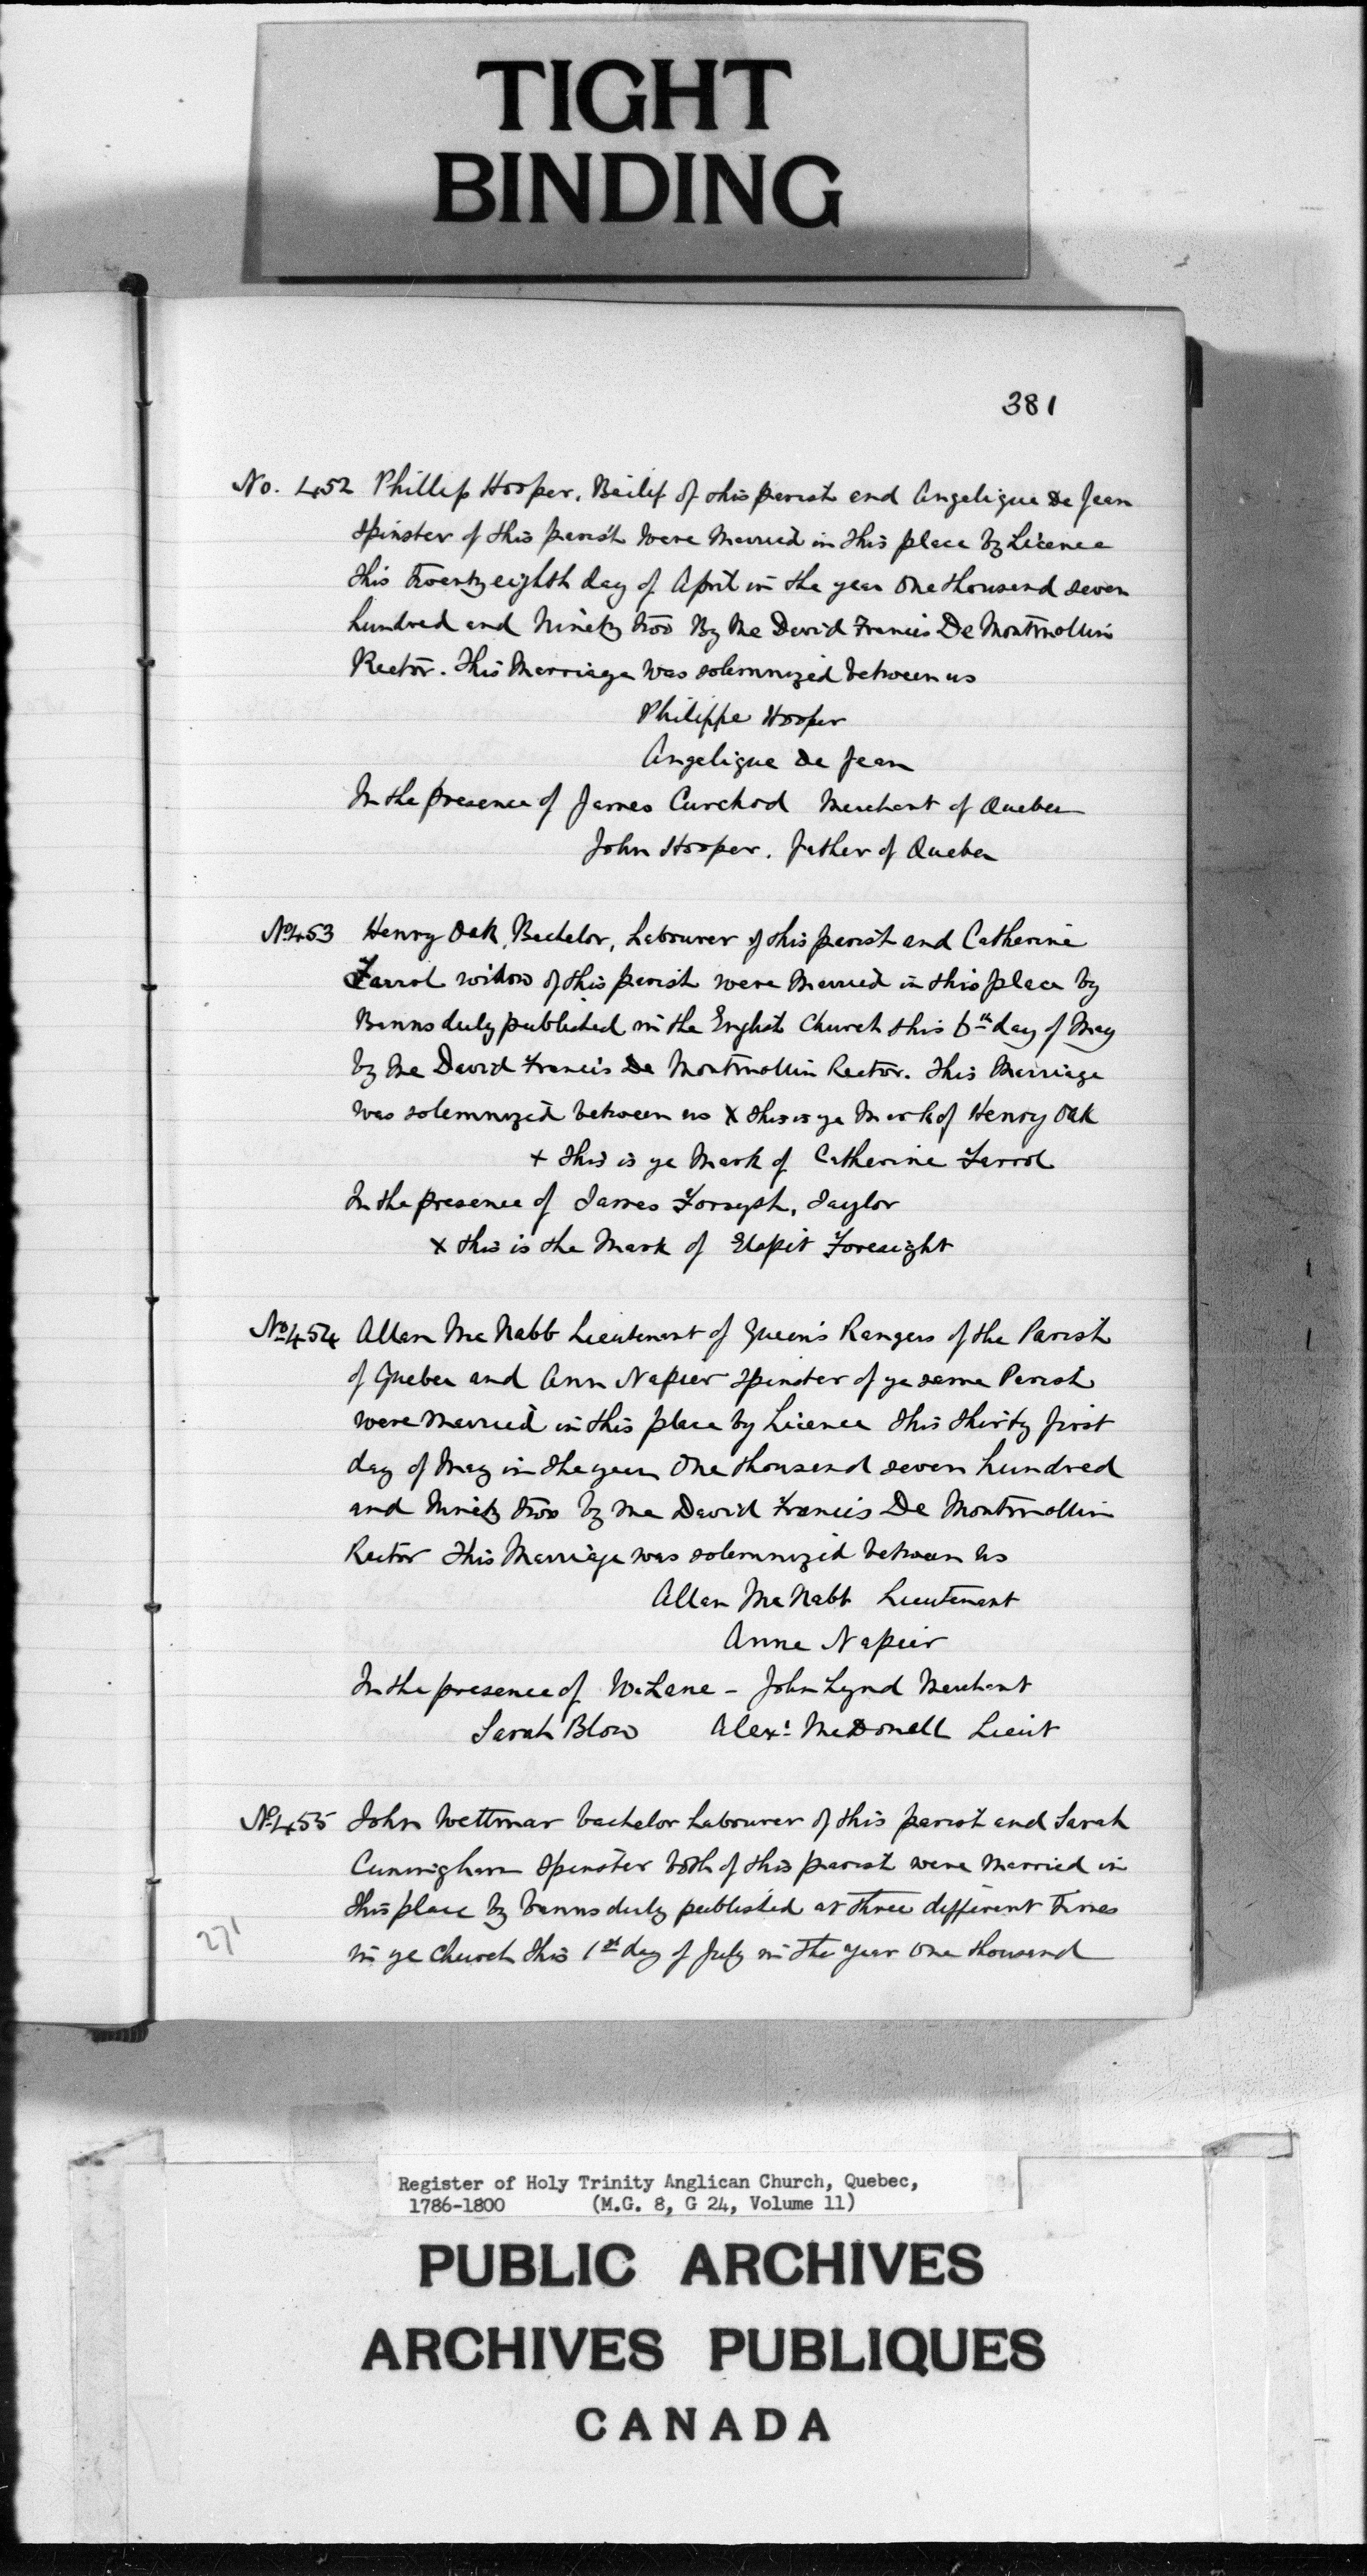 TIGHT
BINDING
381
No. 452 Phillip Hooper, Bailif of this parish and Angelique De Jean
Spinster of this parish were Married in this place by Licence
this twenty eighth day of April in the year One thousand seven
hundred and Ninety two By Me David Francis De Montmollin
Rector. This Marriage was solemnized between us
Philippe Hooper
Angelique De Jean
In the presence of James Curchod Merchant of Quebec
John Hooper, father of Quebec
No 453 Henry Oak, Bachelor, Labourer of this parish and Catherine
Farrol widow of this parish were Married in this place by
Banns duly published in the English Church this 6th day of May
by Me David Francis De Montmollin Rector. This Marriage
was solemnized between us X this is ye Mark of Henry Oak
+ this is ye Mark of Catherine Farrol
In the presence of James Forsyth, Taylor
X this is the Mark of Elspit Foresight
No 454 Allan McNabb Lieutenant of Queen's Rangers of the Parish
of Quebec and Ann Napier Spinster of ye same Parish
were Married in this place by Licence this thirty first
day of May in the year One thousand seven hundred
and Ninety two by me David Francis De Montmollin
Rector This Marriage was solemnized between us
Allan McNabb Lieutenant
Anne Napier
In the presence of W. Lane - John Lynd Merchant
Sarah Blow Alexr McDonell Lieut
No 455 John Wettmar bachelor Labourer of this parish and Sarah
Cunningham Spinster both of this parish were Married in
this place by banns duly published at three different times
in ye Church this 1st day of July in the year One thousand
271
Register of Holy Trinity Anglican Church, Quebec,
1786-1800 (M.G. 8, G 24, Volume 11)
PUBLIC ARCHIVES
ARCHIVES PUBLIQUES
CANADA